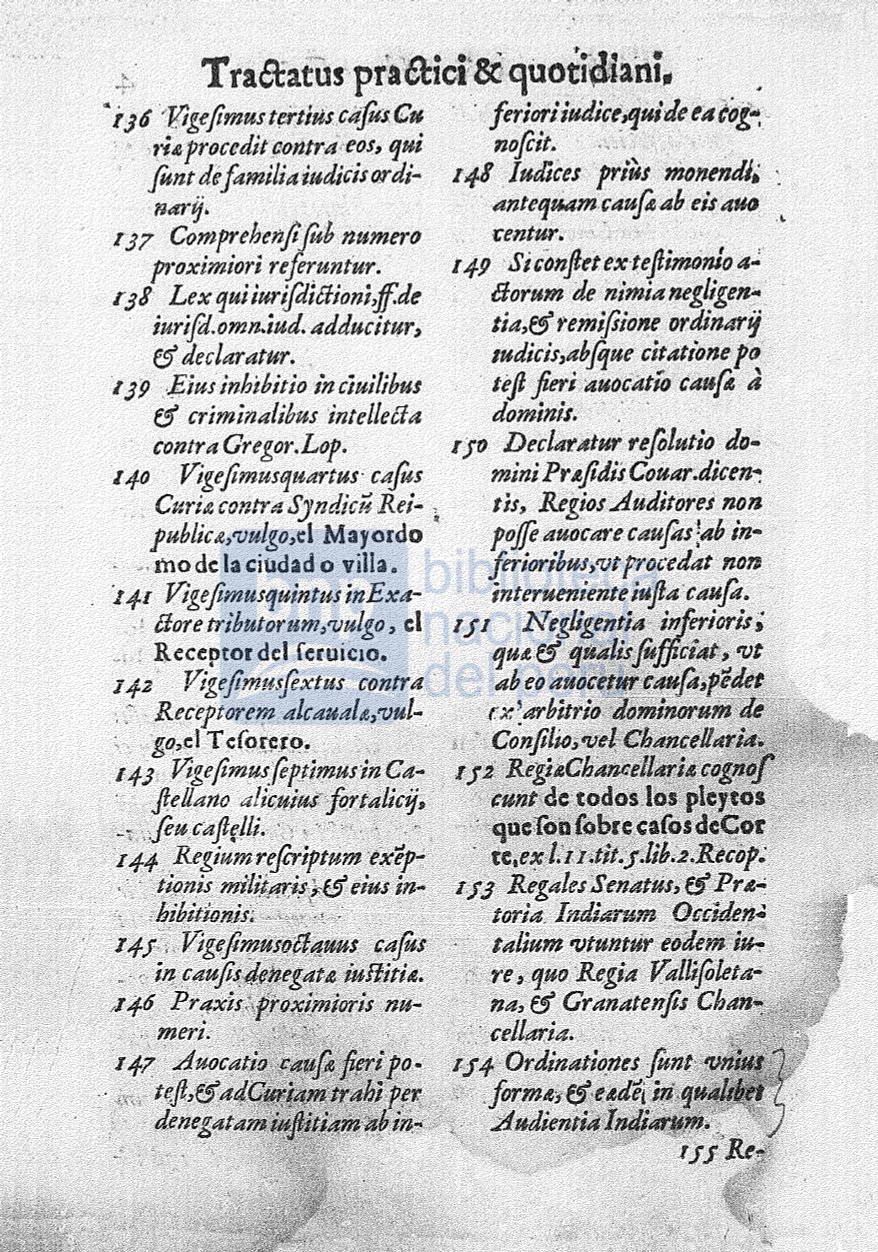 Tractatus practici & quotidiani.
136 Vigeſimus tertius caſus Cu
riæ procedit contra eos, qui
ſunt de familia iudicis ordi-
narij.
137 Comprehenſi ſub numero
proximiori referuntur.
138 Lex qui iuriſdictioni, ff. de
iuriſd. omn. iud. adducitur,
& declaratur.
139 Eius inhibitio in ciuilibus
& criminalibus intellecta
contra Gregor. Lop.
140 Vigeſimusquartus caſus
Curiæ contra Syndicū Rei-
publicæ, vulgo, el Mayordo
mo de la ciudad o villa.
141 Vigeſimusquintus in Exa-
ctore tributorum, vulgo, el
Receptor del ſeruicio.
142 Vigeſimusſextus contra
Receptorem alcaualæ, vul-
go, el Teſorero.
143 Vigeſimus ſeptimus in Ca-
ſtellano alicuius fortalicij,
ſeu caſtelli.
144 Regium reſcriptum exēp-
tionis militaris, & eius in-
hibitionis.
145 Vigeſimusoctauus caſus
in cauſis denegatæ iuſtitiæ.
146 Praxis proximioris nu-
meri.
147 Auocatio cauſæ fieri po-
teſt, & ad Curiam trahi per
denegatam iuſtitiam ab in-
feriori iudice, qui de ea cog-
noſcit.
148 Iudices priùs monendi,
antequam cauſæ ab eis auo
centur.
149 Si conſtet ex teſtimonio a-
ctorum de nimia negligen-
tia, & remiſsione ordinarij
iudicis, abſque citatione po
teſt fieri auocatio cauſæ à
dominis.
150 Declaratur reſolutio do-
mini Præſidis Couar. dicen-
tis, Regios Auditores non
poſſe auocare cauſas ab in-
ferioribus, vt procedat non
interueniente iuſta cauſa.
151 Negligentia inferioris,
quæ & qualis ſufficiat, vt
ab eo auocetur cauſa, pēdet
ex arbitrio dominorum de
Conſilio, vel Chancellaria.
152 Regiæ Chancellariæ cognoſ
cunt de todos los pleytos
que ſon ſobre caſos de Cor
te, ex l. 11. tit. 5. lib. 2. Recop.
153 Regales Senatus, & Præ-
toria Indiarum Occiden-
talium vtuntur eodem iu-
re, quo Regia Valliſoleta-
na, & Granatenſis Chan-
cellaria.
154 Ordinationes ſunt vnius
formæ, & eædē in qualibet
Audientia Indiarum.
155 Re-
biblioteca
nacional
del perú